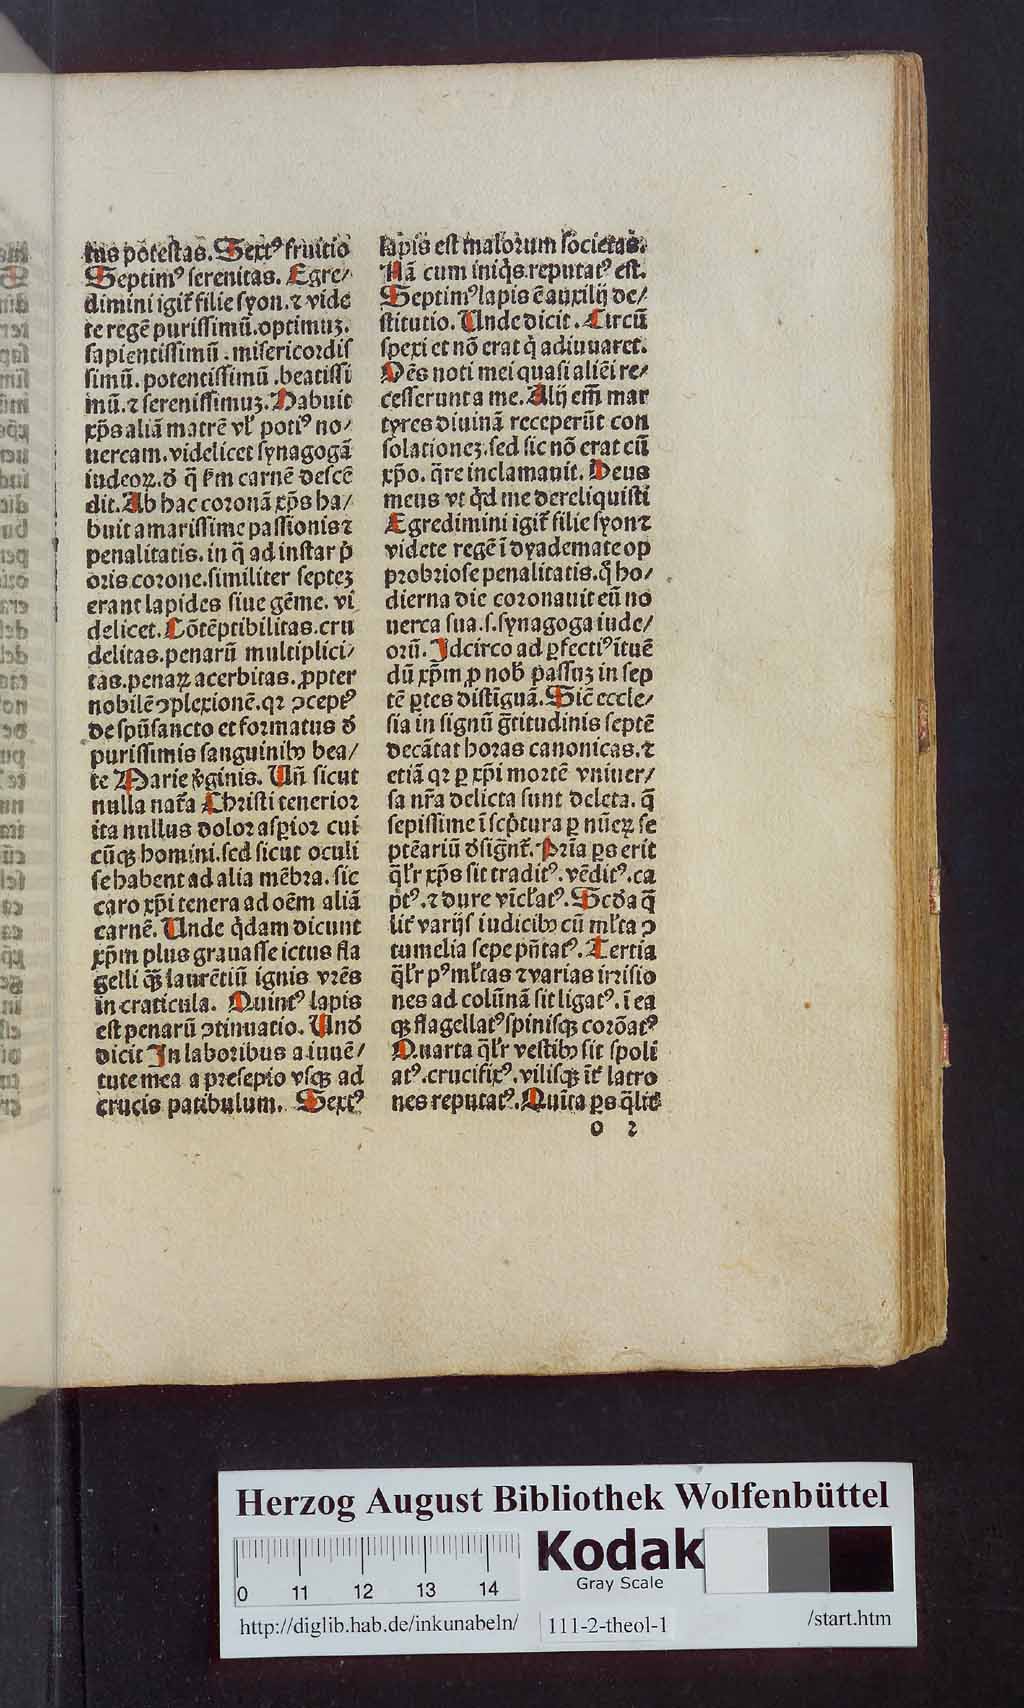 tus potestas. Sextꝰ fruitio
Septimꝰ serenitas. Egre/
dimini igit᷑ filie syon. ⁊ vide
te regē purissimū. optimuꝫ.
sapientissimū. misericordis
simū. potentissimū. beatissi
mū. ⁊ serenissimuꝫ. Habuit
xp̄s aliā matrē vl᷑ potiꝰ no/
uercam. videlicet synagogā
iudeoꝝ. ð q̄ ẜm carnē descē
dit. Ab hac coronā xp̄s ha/
buit amarissime passionis ⁊
penalitatis. in q̄ ad instar p̄
oris corone. similiter septeꝫ
erant lapides siue gēme. vi
delicet. Cōtēptibilitas. cru
delitas. penarū multiplici/
tas. penaꝝ acerbitas. ꝓpter
nobilē ꝯplexionē. qꝛ ꝯceptꝰ
de spū sancto et formatus ð
purissimis sanguinibꝰ bea/
te Marie v̓ginis. Un̄ sicut
nulla nat᷑a Christi tenerior
ita nullus dolor asꝑior cui
cūqꝫ homini. sed sicut oculi
se habent ad alia mēbra. sic
caro xp̄i tenera ad oēm aliā
carnē. Unde q̄dam dicunt
xp̄m plus grauasse ictus fla
gelli qꝫ̄ laurētiū ignis vrēs
in craticula. Quintꝰ lapis
est penarū ꝯtinuatio. Unð
dicit In laboribus a iuuē/
tute mea a presepio vsqꝫ ad
crucis patibulum. Sextꝰ
lapis est malorum societas.
Nā cum iniq̄s reputatꝰ est.
Septimꝰ lapis ē auxilij de/
stitutio. Unde dicit. Circū
spexi et nō erat q̄ adiuuaret.
Oēs noti mei quasi aliēi re/
cesserunt a me. Alij em̄ mar
tyres diuinā receperūt con
solationeꝫ. sed sic nō erat cū
xp̄o. q̄re inclamauit. Deus
meus vt q̄d me dereliquisti
Egredimini igit᷑ filie syon ⁊
videte regē ī dyademate op
probriose penalitatis. q̄ ho/
dierna die coronauit eū no
uerca sua. s. synagoga iude/
orū. Idcirco ad ꝑfectiꝰ ītuē
dū xp̄m ꝓ nob̄ passuꝫ in sep
tē ꝑtes distīguā. Sic̄ eccle/
sia in signū ḡtitudinis septē
decātat horas canonicas. ⁊
etiā qꝛ ꝑ xp̄i mortē vniuer/
sa nr̄a delicta sunt deleta. q̄
sepissime ī sc̄ptura ꝑ nūeꝝ se
ptēariū ðsiḡnt᷑. Pria ꝑs erit
q̄lr̄ xp̄s sit traditꝰ. vēditꝰ. ca
pt̄ꝰ. ⁊ dure vīcl᷑atꝰ. Sc̄ða q̄
lit᷑ varijs iudicibꝰ cū ml᷑ta ꝯ
tumelia sepe pn̄tatꝰ. Tertia
q̄lr̄ pꝰ ml᷑tas ⁊ varias irrisio
nes ad colūnā sit ligatꝰ. ī ea
qꝫ flagellatꝰ spinisqꝫ corōatꝰ
Quarta q̄lr̄ vestibꝰ sit spoli
atꝰ. crucifixꝰ. vilisqꝫ īt᷑ latro
nes reputatꝰ. Quīta ꝑs q̄lit᷑
o 2
Herzog August Bibliothek Wolfenbüttel
0 11 12 13 14
Kodak
Gray Scale
http://diglib.hab.de/inkunabeln/ 111-2-theol-1 /start.htm